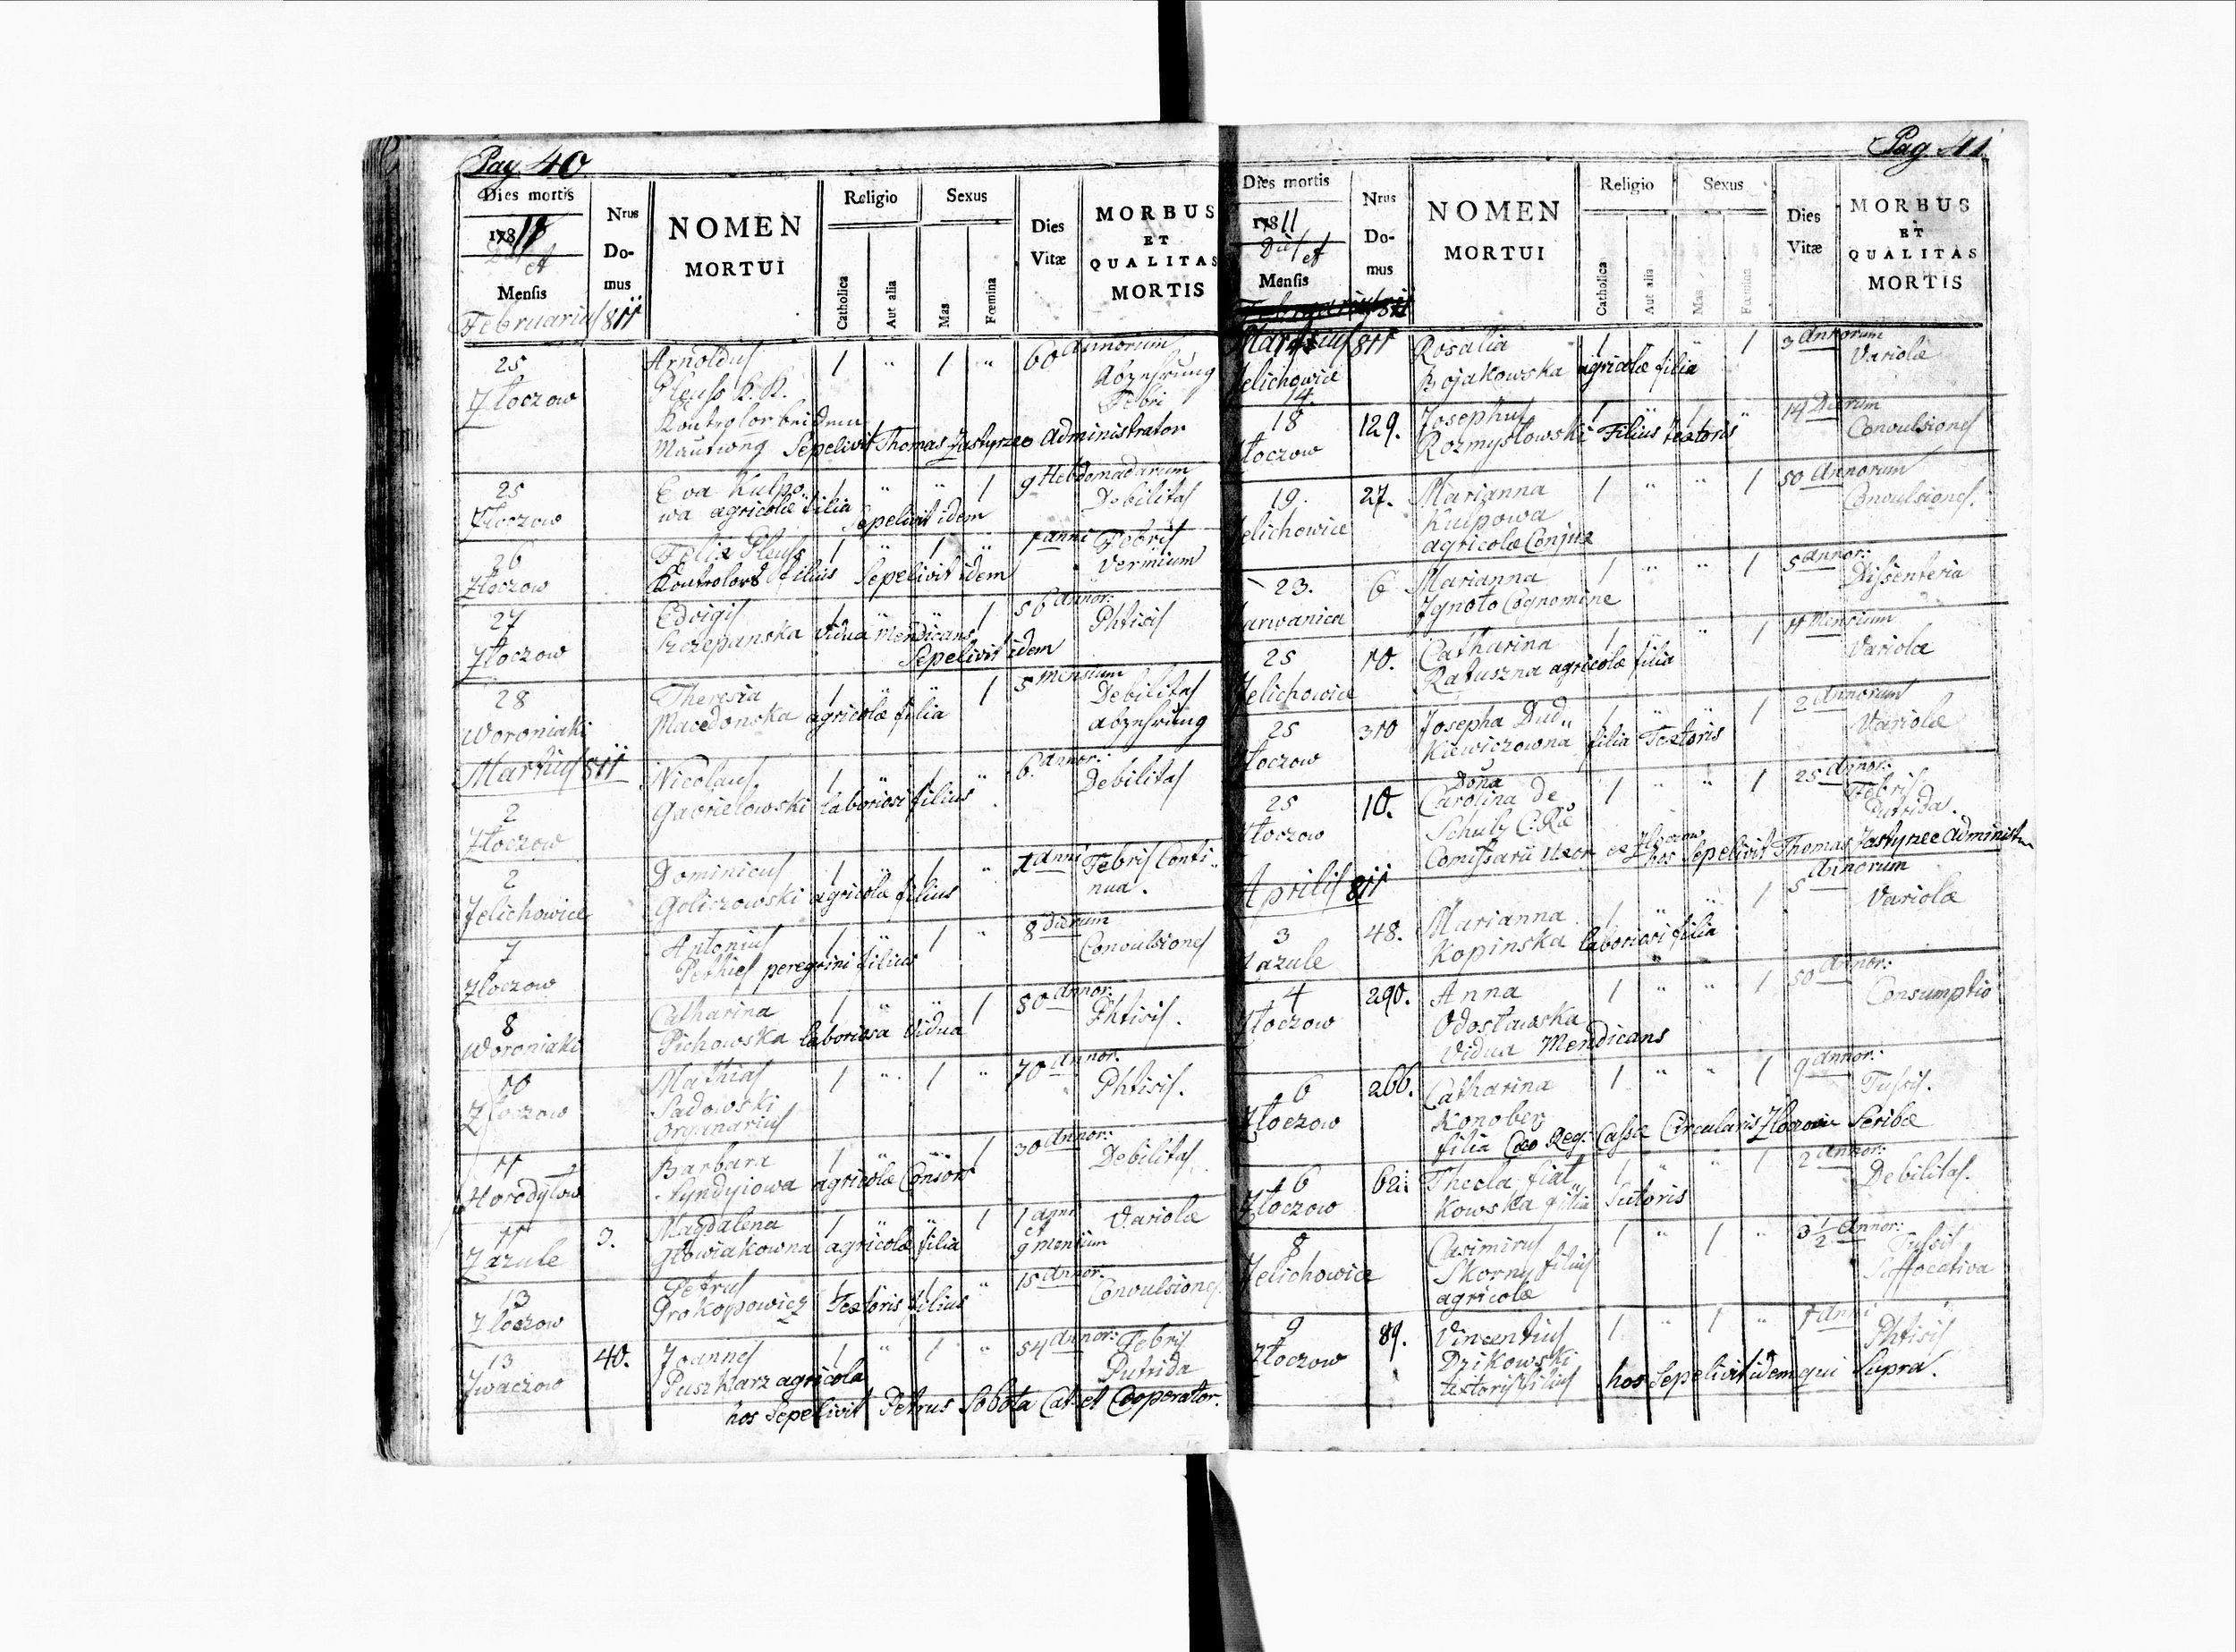 Pag 40
Dies mortis
Nrus
Do-
mus
NOMEN
MORTUI
Religio
Sexus
Catholica
Aut alia
Mas
Fœmina
Dies
Vitæ
MORBUS
ET
QUALITAS
MORTIS
178
et
Mensis
Februarius 811
25 Arnoldus 1 " 1 " 60 Annorum
Złoczow Pleuss K. K. Abzehrung
Febri
Kontrolor bei dem
Mautwng Sepelivit Thomas Jastyrzec Administrator
25 Eva Kulpo- 1 " " 1 9 Hebdomadarum
Złoczow wa agricolæ filia Debilitas
Sepelivit idem
26 Felix Pleuss 1 " 1 " 1 anni Febris
Złoczow Kontrolors filius Sepelivit idem Vermium
27 Edvigis 1 " " 1 56 Annor:
Złoczow Szczepanska vidua mendicans Phtisis
Sepelivit idem
28 Theresia 1 " " 1 5 Mensium
Woroniaki Macedonska agricolæ filia Debilitas
abzehrung
Martius 811
2 Nicolaus 1 " 1 " 6. Annor:
Złoczow Gavrielowski laboriosi filius Debilitas
2 Dominicus 1 " 1 " 1 Anni Febris Conti-
Jelichowice Goliczowski agricolæ filius nua.
7 Antonius 1 " 1 " 8 dierum
Złoczow Pethies peregrini filius Convulsiones
8 Catharina 1 " " 1 80 Annor:
Woroniaki Pichowska laboriosa vidua Phtisis.
10 Mathias 1 " 1 " 70 Annor:
Złoczow Sadowski Phtisis.
Organarius
11 Barbara 1 " " 1 30 Annor:
Horodyłow Syndyiowa agricolæ Consors Debilitas
11 3. Magdalena 1 " " 1 1 anni
et
Zazule Głowiakowna agricolæ filia 9 mensium Variolæ
13 Petrus 1 " 1 " 15 Annor:
Złoczow Prokopowicz Textoris filius Convulsiones
13 40. Joannes 1 " 1 " 54 Annor: Febris
Zwaczow Puszkarz agricola Putrida
hos Sepelivit Petrus Sobota Cat: et Cooperator.
Pag 41
Dies mortis
Nrus
Do-
mus
NOMEN
MORTUI
Religio
Sexus
Catholica
Aut alia
Mas
Fœmina
Dies
Vitæ
MORBUS
ET
QUALITAS
MORTIS
17811
Die/et
Mensis
Martius 811
Rosalia 1 " " 1 3 Annorum
Jelichowice Bojakowska agricolæ filia Variolæ
14.
18 129. Josephus 1 " 1 " 14 Dierum
Złoczow Rozmysłowski Filius textoris Convulsiones
19. 27. Marianna 1 " " 1 50 Annorum
Jelichowice Kulpowa Convulsiones.
agricolæ Conjux
23. 6 Marianna 1 " " 1 5 Annor:
Ignoto Cognomine Dissenteria
25 10. Catharina 1 " " 1 4 Mensium
Jelichowice Ratuszna agricolæ filia Variolæ
25 310 Josepha Dud- 1 " " 1 2 Annorum
Złoczow kiewiczowna filia Textoris Variolæ
25 10. Dona 1 " " 1 25 Annor:
Złoczow Carolina de Febris
Schulz C: Ræ Putrida.
Comissarii
hos Sepelivit Thomas Jastyrzec Administr
Aprilis 811
3 48. Marianna 1 " " 1 5 Annorum
Zazule Kopinska laboriosi filia Variolæ
4 290. Anna 1 " " 1 50 Annor:
Złoczow Odosławska Consumptio
Vidua Mendicans
6 266. Catharina 1 " " 1 9 Annor:
Złoczow Konober Tussis.
filia Cæo Reg: Cassæ Circularis Zloczoviæ Scribæ
6 62. Thecla Fiat- 1 " " 1 2 Annor:
Złoczow kowska filia Sutoris Debilitas.
8 Casimirus 1 " 1 " 3 1/2 Annor:
Jelichowice Skorny filius Tussis
agricolæ Suffocativa
9 89. Vincentius 1 " 1 " 1 Anni
Złoczow Dzikowski Phtisis
textoris filius hos Sepelivit idem qui Supra.